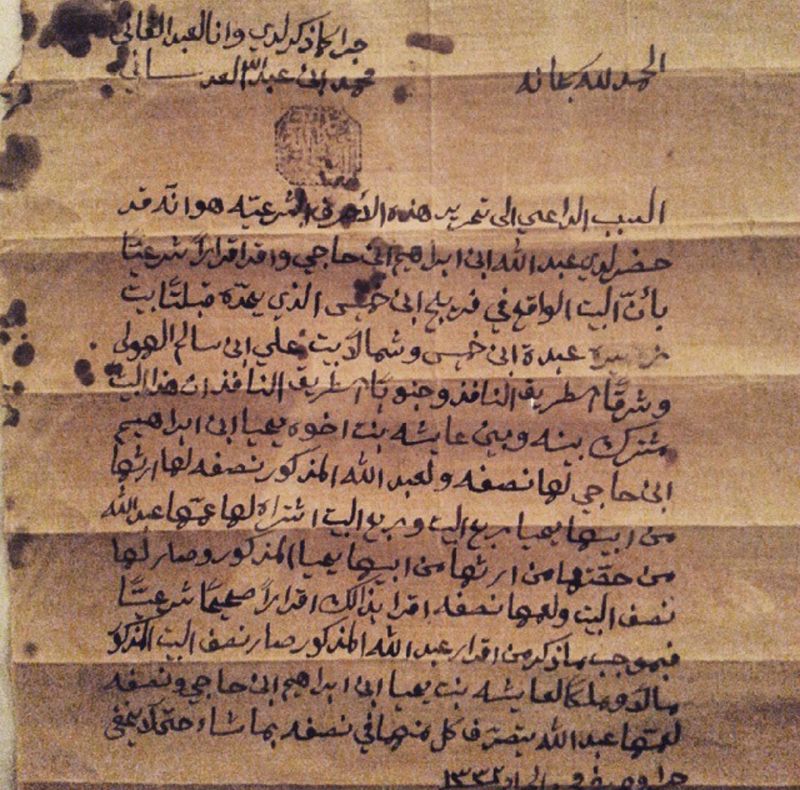 الحمد لله سبحانه
جرا كما ذكر لدي وانا العبد الفاني
محمد ابن عبدالله العدساني
السبب الداعي الى تحرير هذه الأحرف الشرعيّه هو انّه قد
حضر لدي عبد الله ابن ابراهيم ابن حاجي واقر اقراراً شرعيّاً
بأنّ البيت الواقع في فريج ابن خميس الذي يحدّه قبلتاً بيت
عبدة ابن خميس وشمالاً بيت علي ابن سالم الهولي
وشرقاً طريق النافذ وجنوباً طريق النافذ ان هذا البيت
مشترك بينه وبين عايشه بنت اخوه يحيا ابن ابراهيم
ابن حاجي لها نصفه ولعبد الله المذكور نصفه لها ارثها
من ابيها يحيا ربع البيت وربع البيت اشتراه لها عمّها عبدالله
من حقّها من ارثها من ابيها يحيا المذكور وصار لها
نصف البيت ولعمها نصفه اقر بذالك اقراراً صحيحاً شرعيّاً
فبموجب ما ذكر من اقرار عبد الله المذكور صار نصف البيت المذكور
مالاً وملكاً لعايشه بنت يحيا ابن ابراهيم ابن حاجي ونصفه
لعمّها عبد الله يتصرّف كل منهما في نصفه بما شاء حتى لا يخفى
جرا وحرر في ١٣٣٢